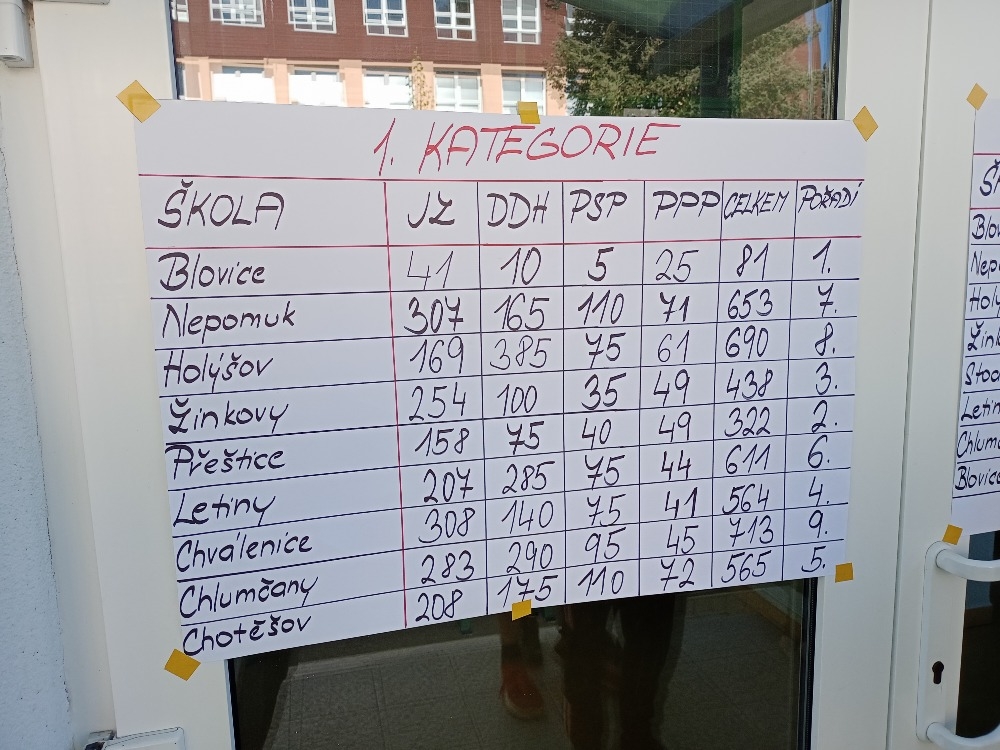 1. KATEGORIE
ŠKOLA JZ DDH PSP PPP CELKEM POŘADÍ
Blovice 41 10 5 25 81 1.
Nepomuk 307 165 110 71 653 7.
Holýšov 169 385 75 61 690 8.
Žinkovy 254 100 35 49 438 3.
Přeštice 158 75 40 49 322 2.
Letiny 207 285 75 44 611 6.
Chválenice 308 140 75 41 564 4.
Chlumčany 283 290 95 45 713 9.
Chotěšov 208 175 110 72 565 5.
Š
Blov
Nepo
Holý
Žink
Letin
Chlum
Blovic